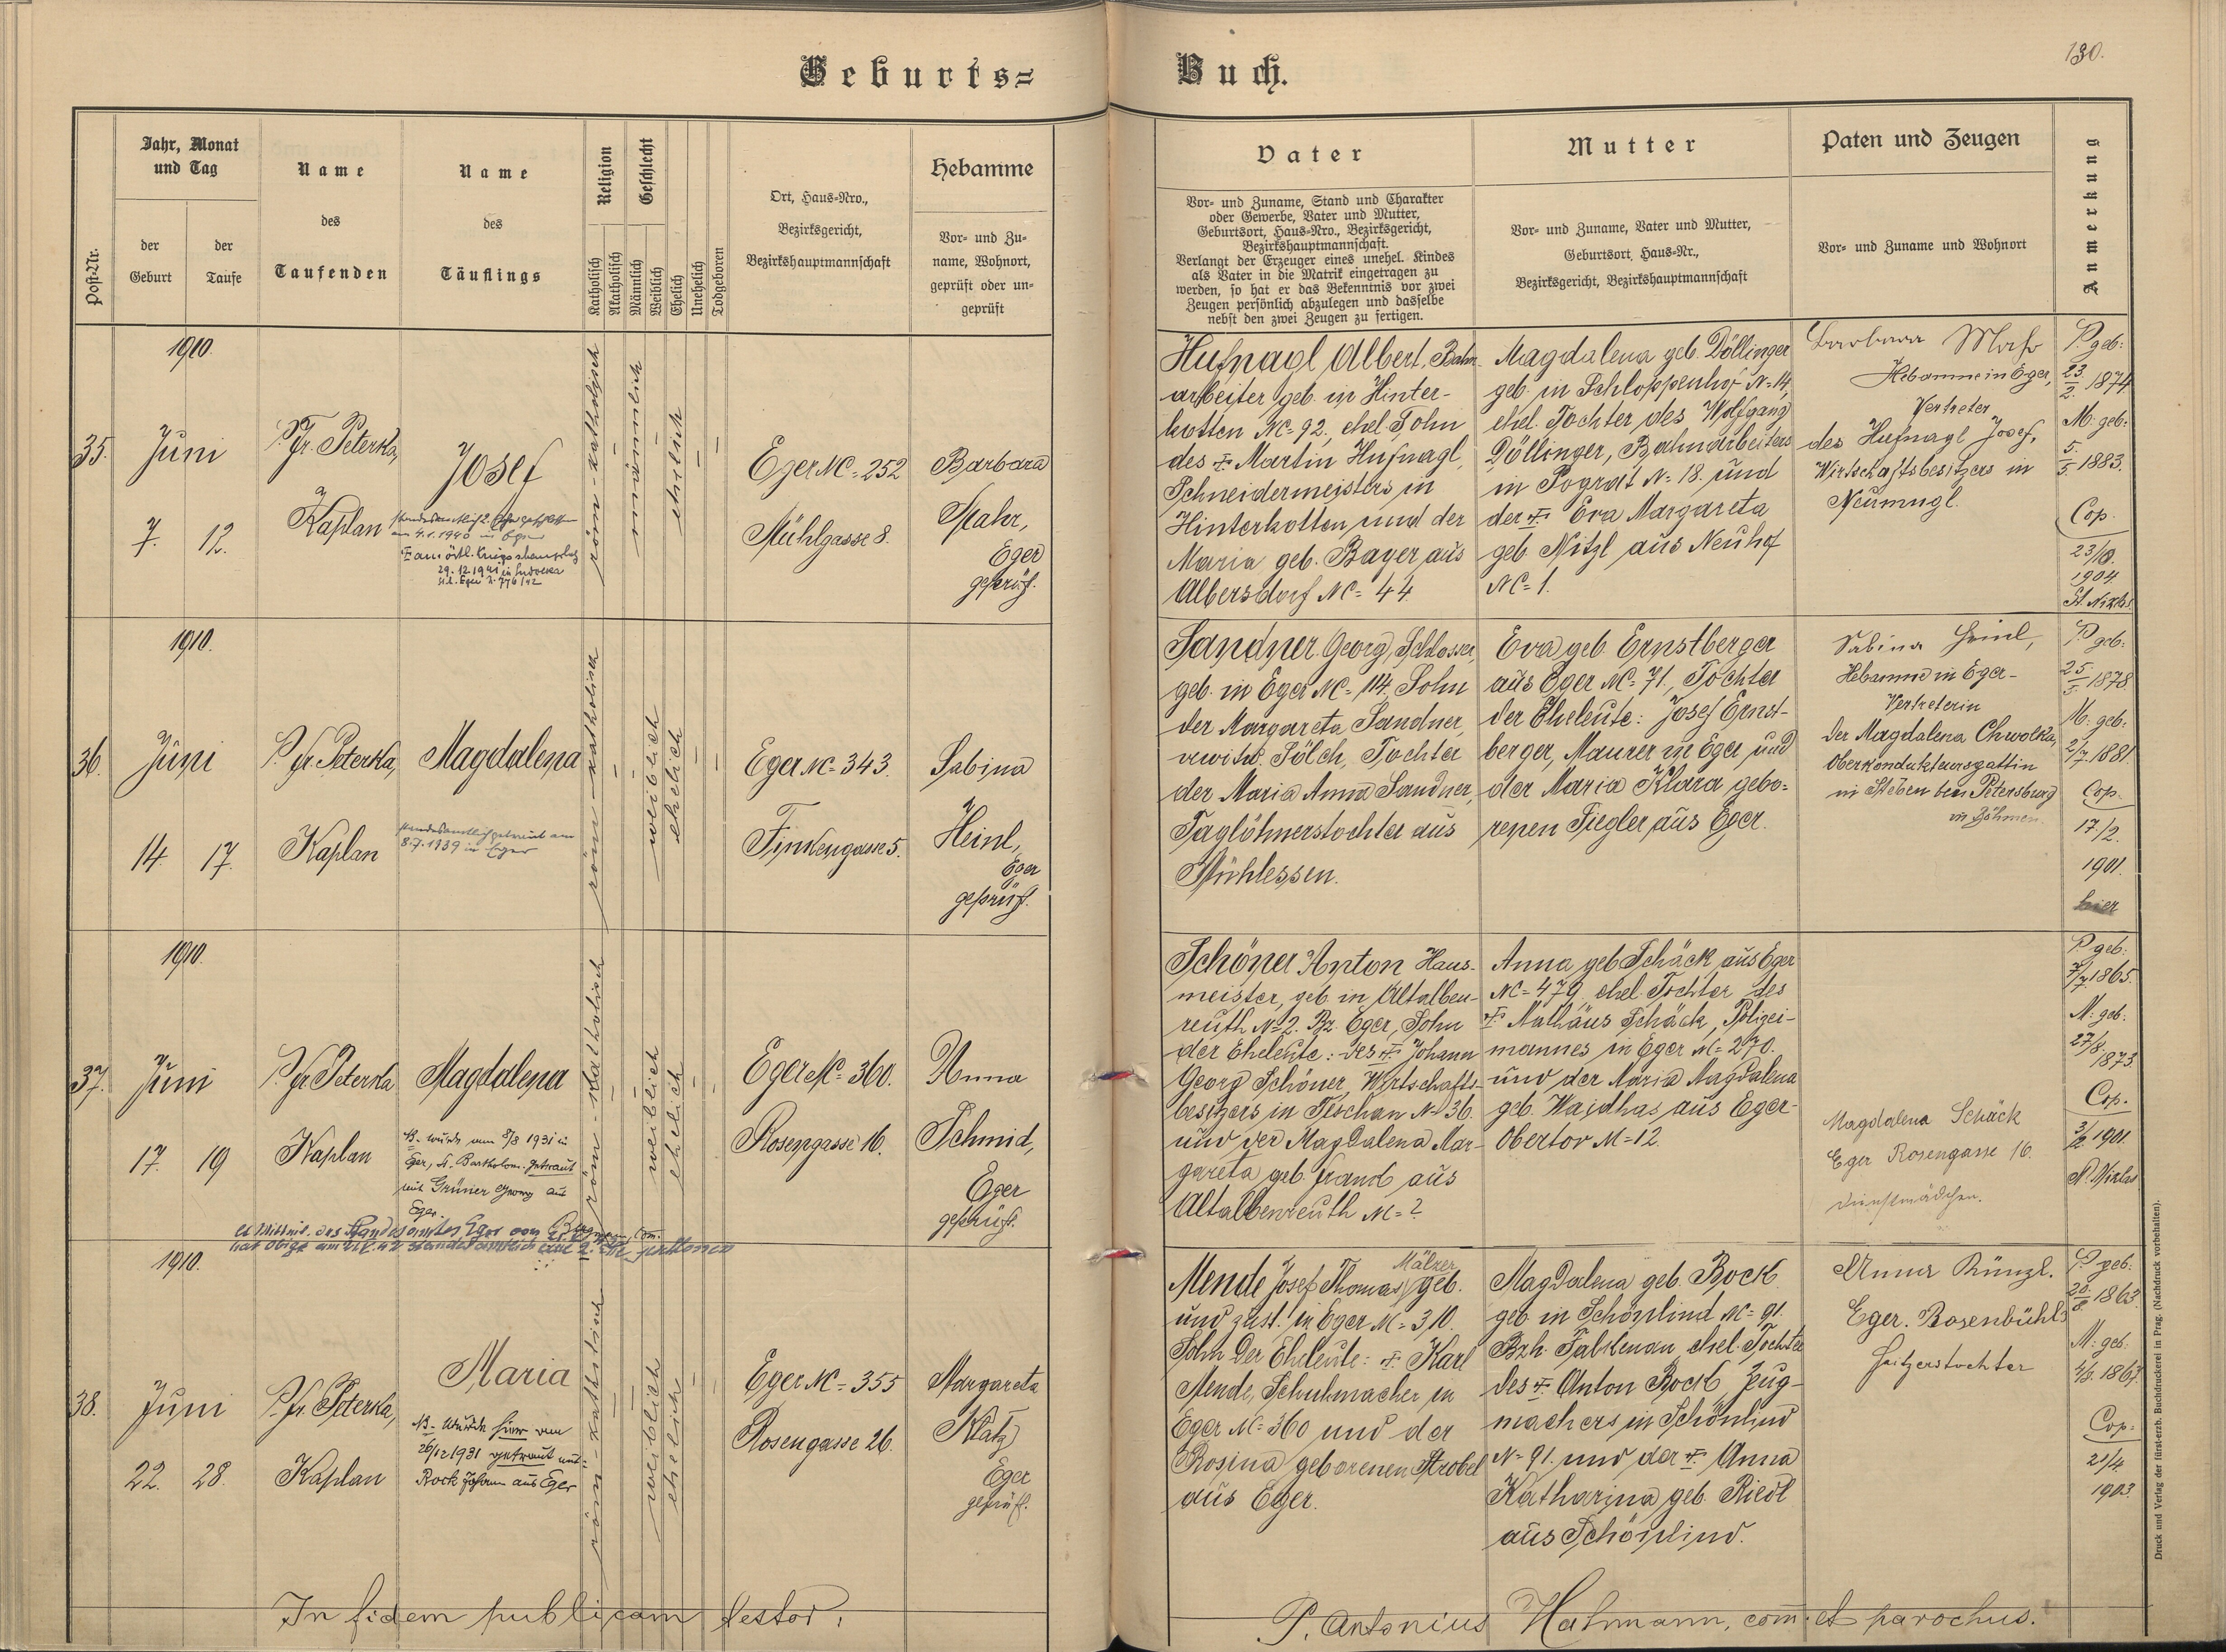 Geburts=
Buch.
130.
Post-Nr.
Jahr, Monat
und Tag
der
Geburt
der
Taufe
Name
des
Taufenden
Name
des
Täuflings
Religion
Katholisch
Akatholisch
Geschlecht
Männlich
Weiblich
Ehelich
Unehelich
Todgeboren
Ort, Haus-Nro.,
Bezirksgericht,
Bezirkshauptmannschaft
Hebamme
Vor- und Zu-
name, Wohnort,
geprüft oder un-
geprüft
Vater
Vor- und Zuname, Stand und Charakter
oder Gewerbe, Vater und Mutter,
Geburtsort, Haus-Nro., Bezirksgericht,
Bezirkshauptmannschaft.
Verlangt der Erzeuger eines unehel. Kindes
als Vater in die Matrik eingetragen zu
werden, so hat er das Bekenntnis vor zwei
Zeugen persönlich abzulegen und dasselbe
nebst den zwei Zeugen zu fertigen.
Mutter
Vor- und Zuname, Vater und Mutter,
Geburtsort, Haus-Nr.,
Bezirksgericht, Bezirkshauptmannschaft
Paten und Zeugen
Vor- und Zuname und Wohnort
Anmerkung
1910.
35.
Juni
7. 12.
P. Fr. Peterka,
Kaplan
Josef
standesamtlich 2. Ehe geschlossen
am 4.1.1940 in Eger
29.12.1941 in
röm-katholisch
männlich
ehelich
Eger NC= 252
Mühlgasse 8.
Barbara
Mahr,
Eger
geprüft.
Hufnagl Albert, Bahn-
arbeiter geb. in Hinter-
kotten NC= 92., ehel. Sohn
des Martin Hufnagl,
Schneidermeisters in
Hinterkotten und der
Maria geb. Bayer aus
Albersdorf NC= 44.
Magdalena geb. Döllinger
geb. in Schloppenhof N=14,
ehel. Tochter des Wolfgang
Döllinger, Bahnarbeiters
in Pograt N= 18. und
der Eva Margareta
geb. Nitzl aus Neuhof
NC= 1.
Barbara Mahr
Hebamme in Eger,
Vertreter
des Hufnagl Josef,
Wirtschaftsbesitzers in
Neumugl.
P. geb:
23./2. 1874
M. geb:
5./5. 1883.
Cop.
1904
St. Niklas
1910.
36.
Juni
14. 17.
P. Fr. Peterka,
Kaplan
Magdalena
standesamtlich getraut am
8.7.1939 in Eger
röm-katholisch
weiblich
ehelich
Eger NC= 343.
Finkengasse 5.
Sabina
Heinl,
Eger
geprüft.
Sandner Georg, Schlosser,
geb. in Eger NC= 114, Sohn
der Margareta Sandner,
verwitw. Sölch, Tochter
der Maria Anna Sandner,
Taglöhnerstochter aus
Mühlessen.
Eva geb. Ernstberger
aus Eger NC= 71., Tochter
der Eheleute: Josef Ernst-
berger, Maurer in Eger und
der Maria Klara gebo=
renen Siegler aus Eger.
Sabina Heinl,
Hebamme in Eger-
Vertreterin
der Magdalena Chwolka,
Oberkondukteursgattin
in Stěben bei Petersburg
in Böhmen.
P. geb:
25./5. 1878.
M. geb:
2/7. 1881.
Cop.
17/2.
1901.
hier
1910.
37.
Juni
17. 19
P. Fr. Peterka
Kaplan
Magdalena
NB. wurde am 8/3 1931 in
Eger, St. Bartholom. getraut
mit Grüner Georg aus
Eger.
lt. Mitteil. des Standesamtes Eger vom
röm-katholisch
weiblich
ehelich
Eger NC= 360.
Rosengasse 16.
Anna
Schmid,
Eger
geprüft.
Schöner Anton Haus-
meister, geb. in Altalben-
reuth N=2. Bz. Eger, Sohn
der Eheleute: des Johann
Georg Schöner, Wirtschafts-
besitzers in Teschau N=36.
und der Magdalena Mar-
gareta geb. Frank aus
Altalbenreuth N=?
Anna geb. Schäck aus Eger
NC= 479, ehel. Tochter des
Mathäus Schäck, Polizei-
mannes in Eger N= 270.
und der Maria Magdalena
geb. Waidhas aus Eger-
Obertor N=12.
Magdalena Schäck
Eger Rosengasse 16.
Dienstmädchen.
P. geb:
7/7. 1865.
M. geb:
27/8.
1873.
Cop.
1901.
St. Niklas
1910.
38.
Juni
22. 28.
P. Fr. Peterka,
Kaplan
Maria
NB. wurde hier am
26/12 1931 getraut mit
Rock Johann aus Eger
röm-katholisch
weiblich
ehelich
Eger NC= 355
Rosengasse 26.
Margareta
Klatz
Eger
geprüft.
Mälzer
Mende Josef Thomas, geb.
und zust. in Eger N= 310.
Sohn der Eheleute: Karl
Mende, Schuhmacher in
Eger N= 360 und der
Rosina geborenen Strobel
aus Eger.
Magdalena geb. Bock
geb. in Schönlind NC= 91.
Bzh. Falkenau, ehel. Tochter
des Anton Bock, Zeug-
machers in Schönlind
N= 91. und der Anna
Katharina geb. Riedl
aus Schönlind.
Anna Künzl.
Eger. Rosenbühl
P. geb:
20./8. 1863.
M. geb:
Cop.
21/4.
1903.
In fidem publicam testor:
P. Antonius Hahmann, com. et parochus.
Druck und Verlag der fürst-erzb. Buchdruckerei in Prag. (Nachdruck vorbehalten).